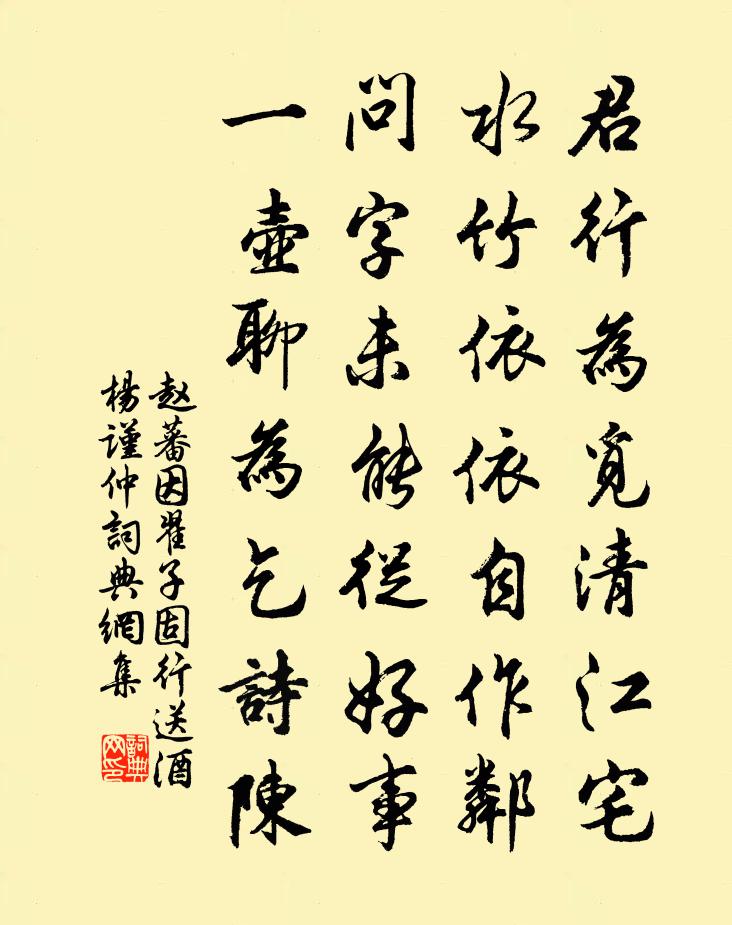 君行為覓清江宅
水竹依依自作鄰
問字未能從好事
一壺聊為乞詩陳
赵蕃因翟子固行送酒
楊谨仲詞典網集
詞典
网印